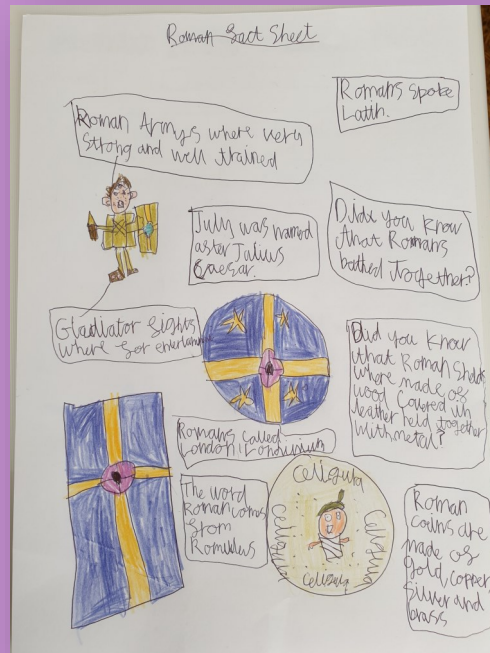 Roman Fact Sheet
Romans spoke
Latin.
Roman Armys where very
Strong and well trained
July was named
after Julius
Caesar.
Did you know
that Romans
bathed Together?
Gladiator fights
where for
Did you know
that Roman
where made of
wood Covered in
leather held together
with metal?
Romans called
London: Londinium
The word
Roman comes
from
Roman
coins are
made of
gold, copper,
Silver and
brass